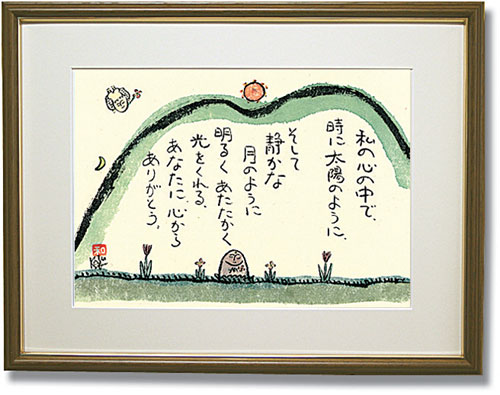 私の心の中で、
時に太陽のように、
そして
静かな
月のように
明るくあたたかく
光をくれる
あなたに、心から
ありがとう。
和